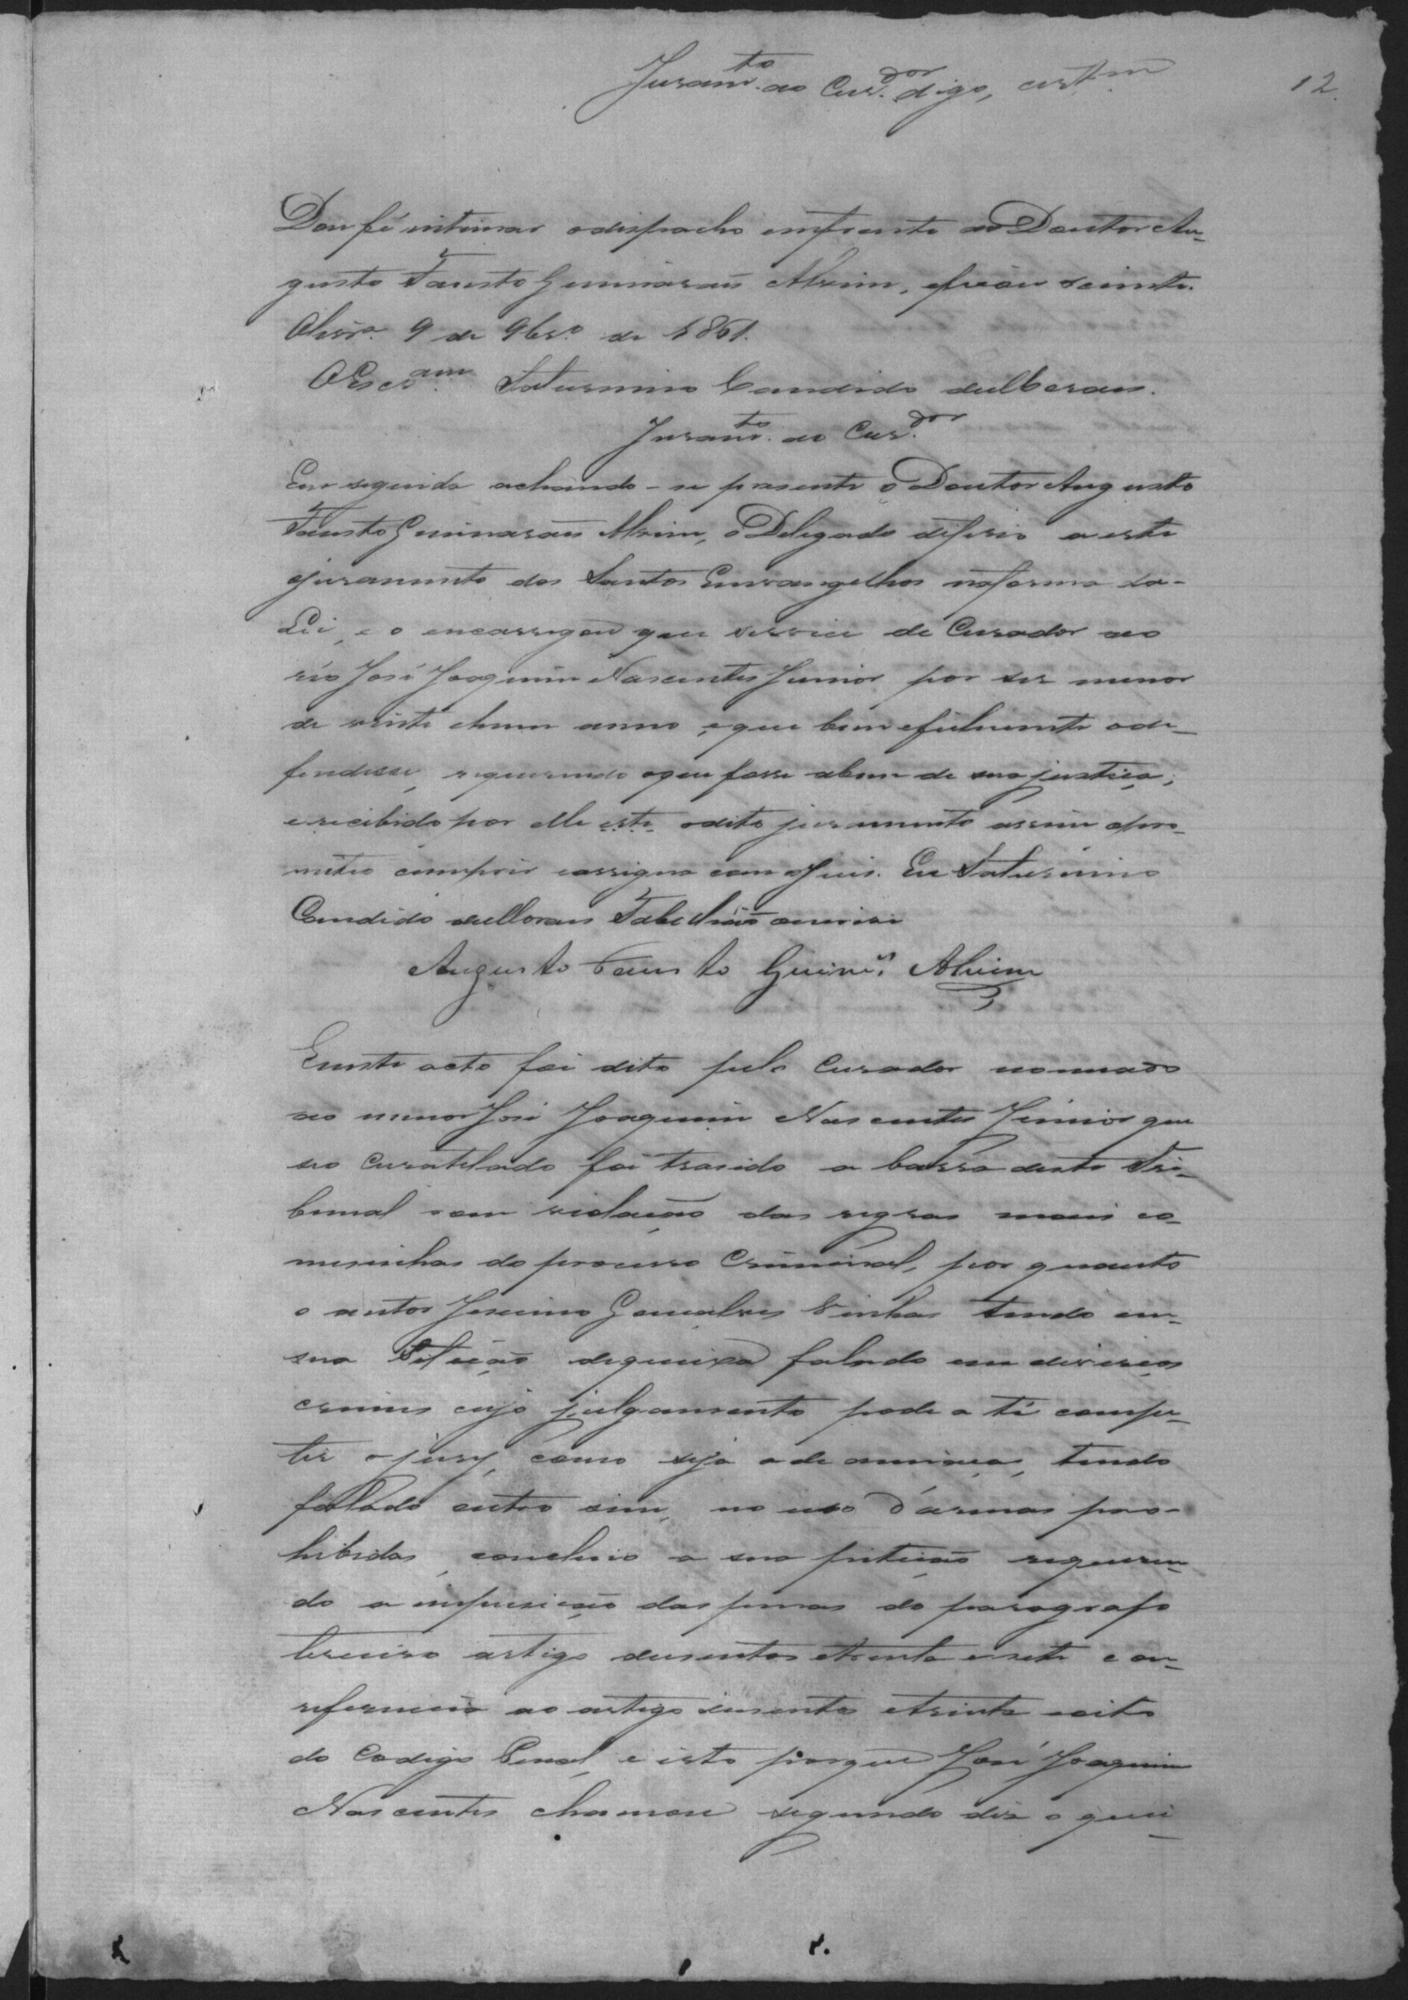 Juram.to ao Cur.dor digo, cert.m
12.
Dou fé intimar o dispacho emfrente ao Doutor Au-
gusto Fausto Guimarães Alvim, eficou sciente.
9 de 9br.o de 1861.
O Escr.am Saturnino Candido
Juram.to ao Cur.dor
Em seguida achando-se presente o Doutor Augusto
Fausto Guimarães Alvim, o Delegado deferio a este
ojuramento dos Santos Envangelhos naforma da-
Lei, e o encarregou que service de Curador ao
réo José Joaquim Nascentes Junior por ser menor
de vinte ehum anno, eque bem efielmente o de-
fendesse, requerendo oque fosse abem de sua justiça;
erecebido por elle este odito juramento assim opro-
meteo cumprir eassigna com oJuis. Eu Saturnino
Candido Tabellião oescrivi
Augusto Fausto Guim.es Alvim
Eneste acto foi dito pelo Curador nomeado
ao menor José Joaquim Nascentes Junior que
seo Curatelado foi trasido a barra deste Tri-
bunal com violação das regras mais co-
mesinhas do processo Criminal, por quanto
o autor Gonçalves tendo em
sua Petição dequeixa falado em diversos
crimes cujo julgamento pode a té compe-
tir ojury, como seja o de ameaças, tendo
falado outro sim, no uso d'armas pro-
hibidas, concluio a sua petição requeren-
do a imposição das penas do paragrafo
terceiro artigo dusentos etrinta esete com
referencia ao artigo dusentos etrinta eoito
do Codigo Penal, e isto porque José Joaquim
Nascentes chamou segundo diz o quei-